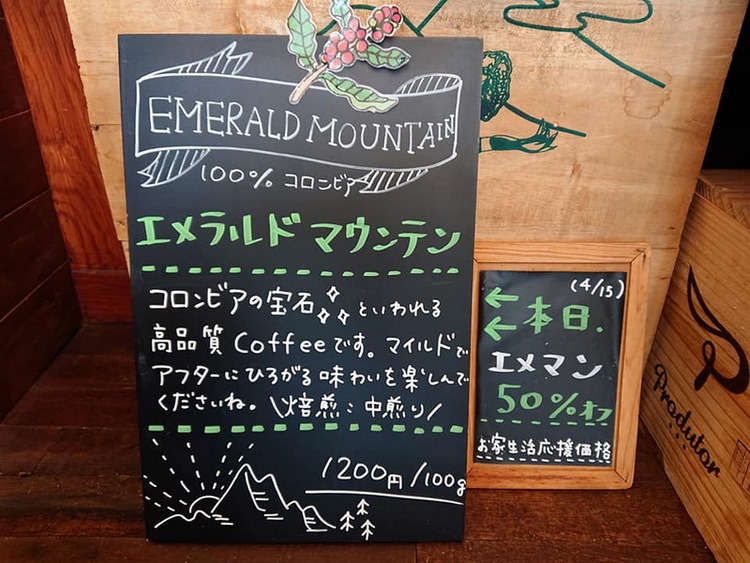 EMERALD MOUNTAIN
100% コロンビア
エメラルド マウンテン
コロンビアの宝石 といわれる
高品質 Coffeeです。マイルドで
アフターにひろがる味わいを楽しんで
くださいね。\焙煎:中煎り/
1200円/100g
(4/15)
←本日.
←
エメマン
50%オフ
お家生活応援価格
Produtor